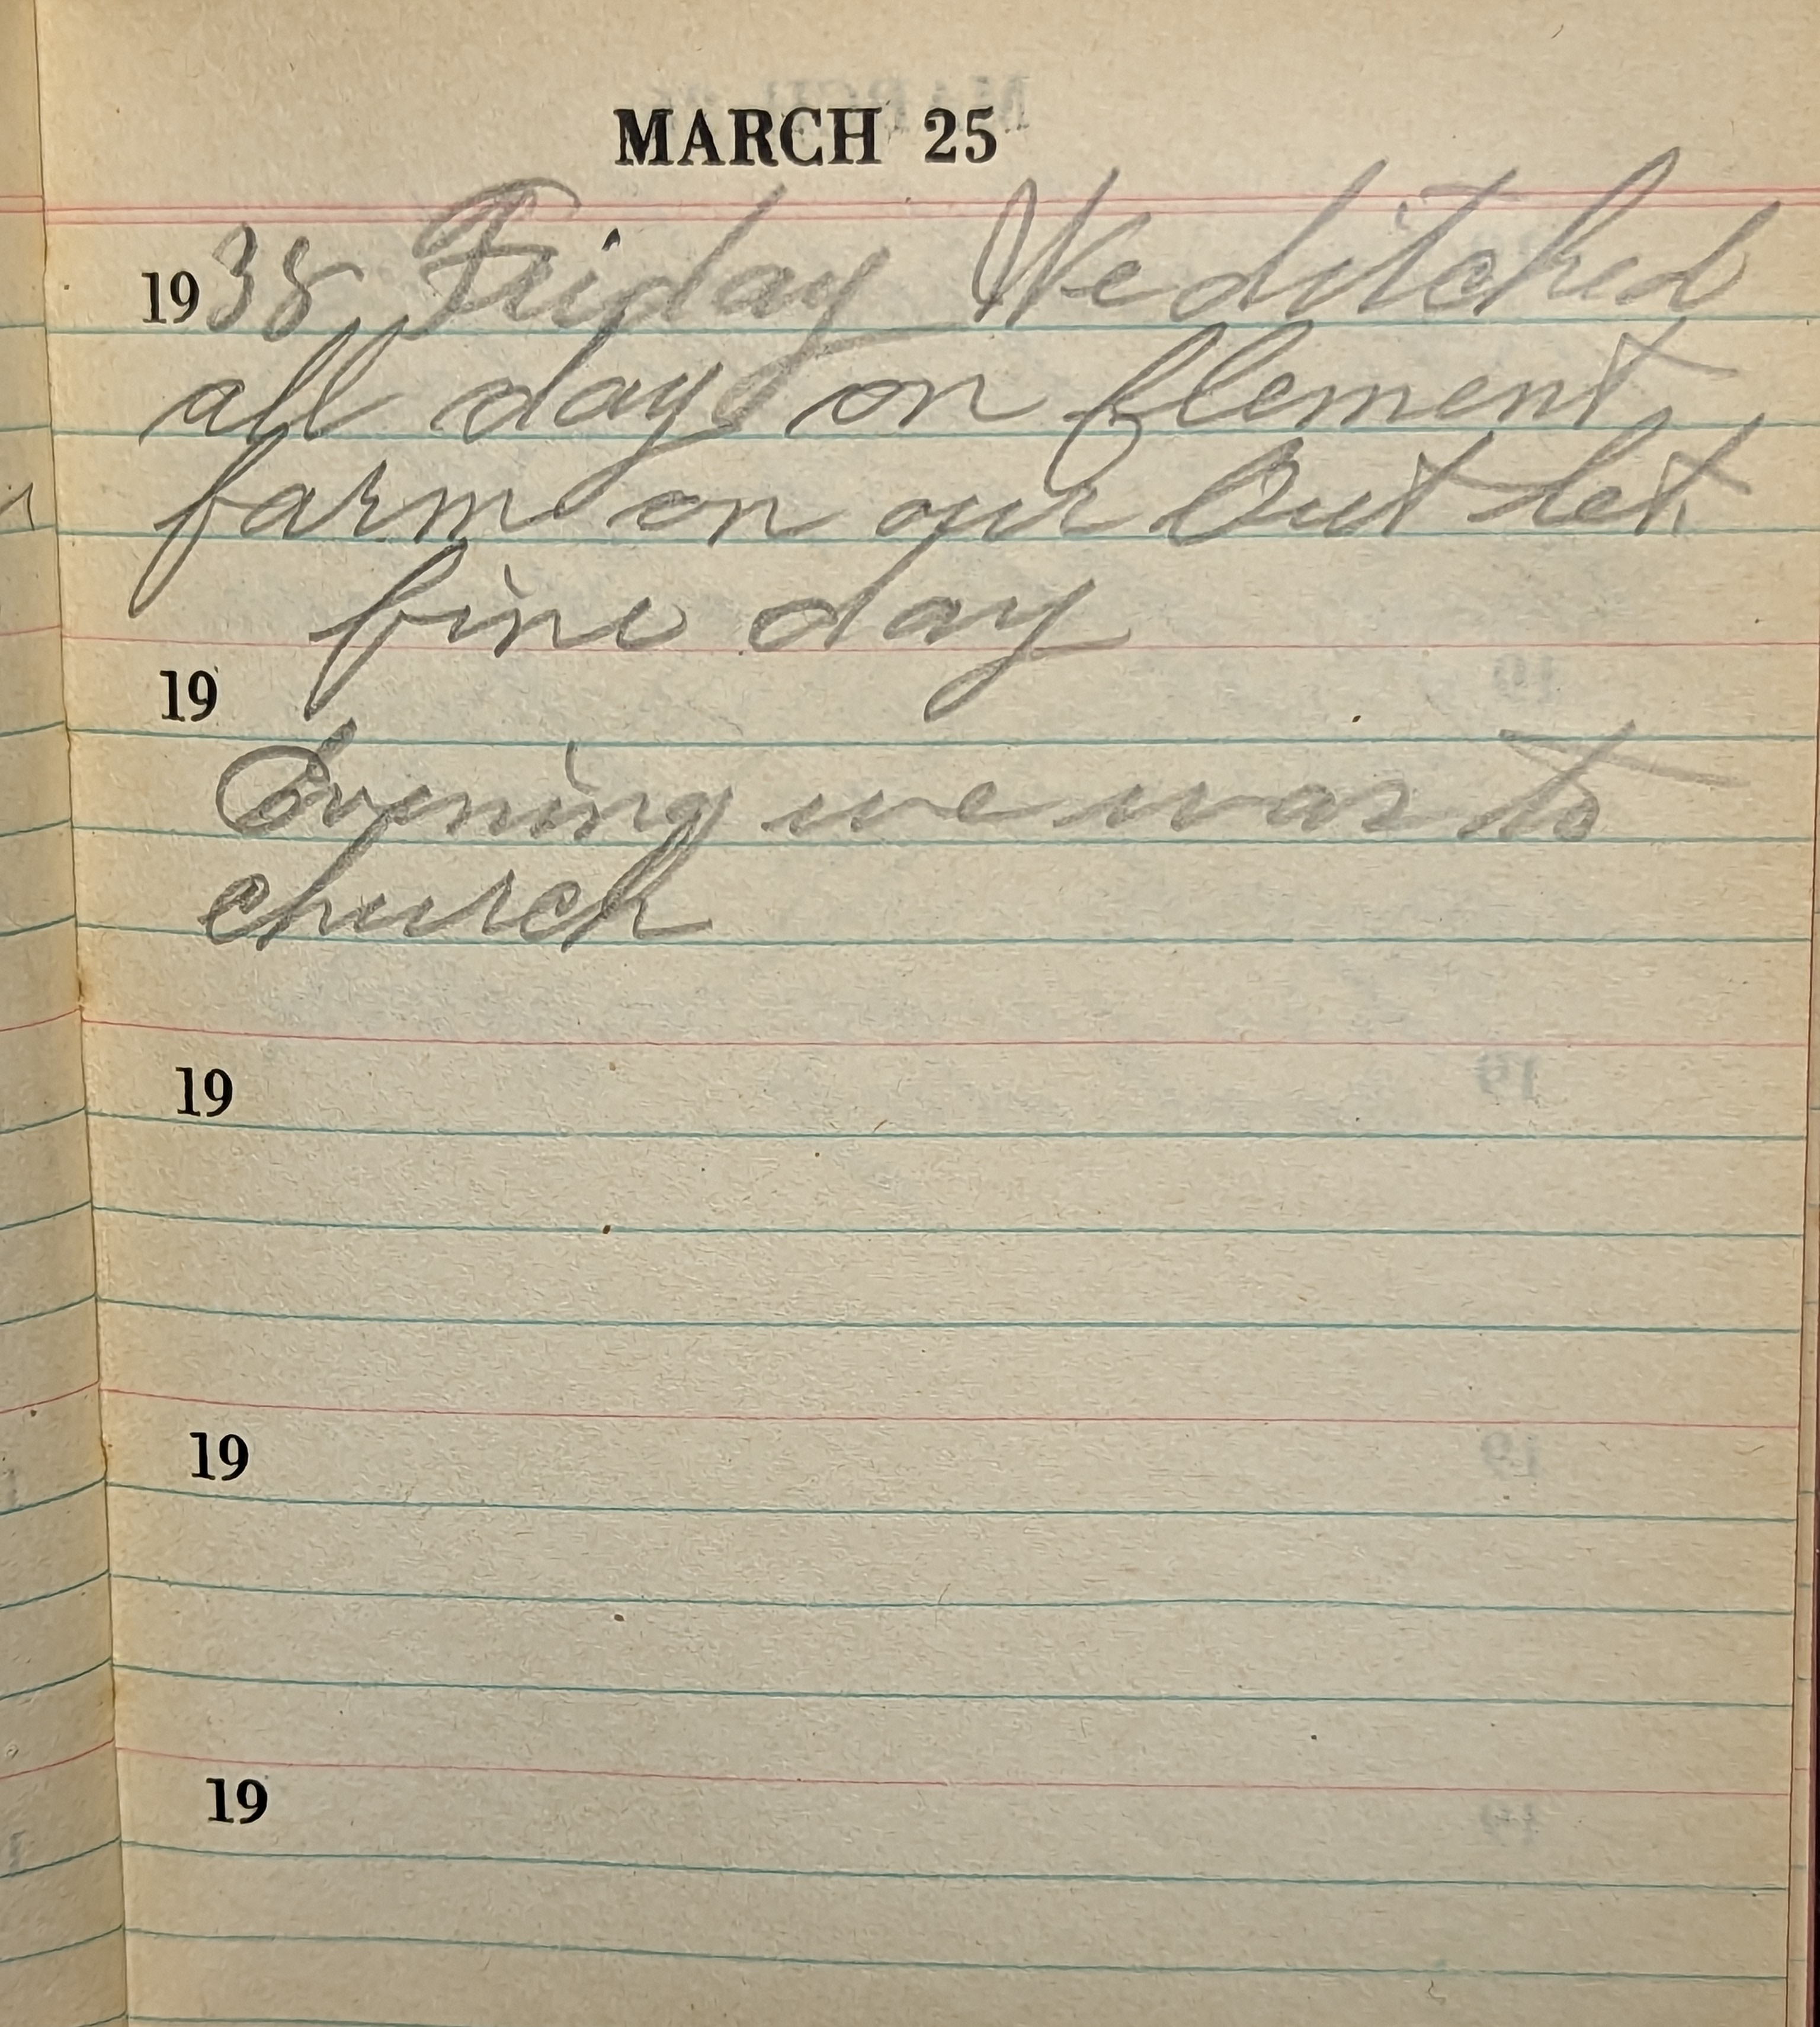 MARCH 25
1938 Friday We ditched
all day on Clement
farm on our Out let
fine day
19
Evening we was to
church
19
19
19